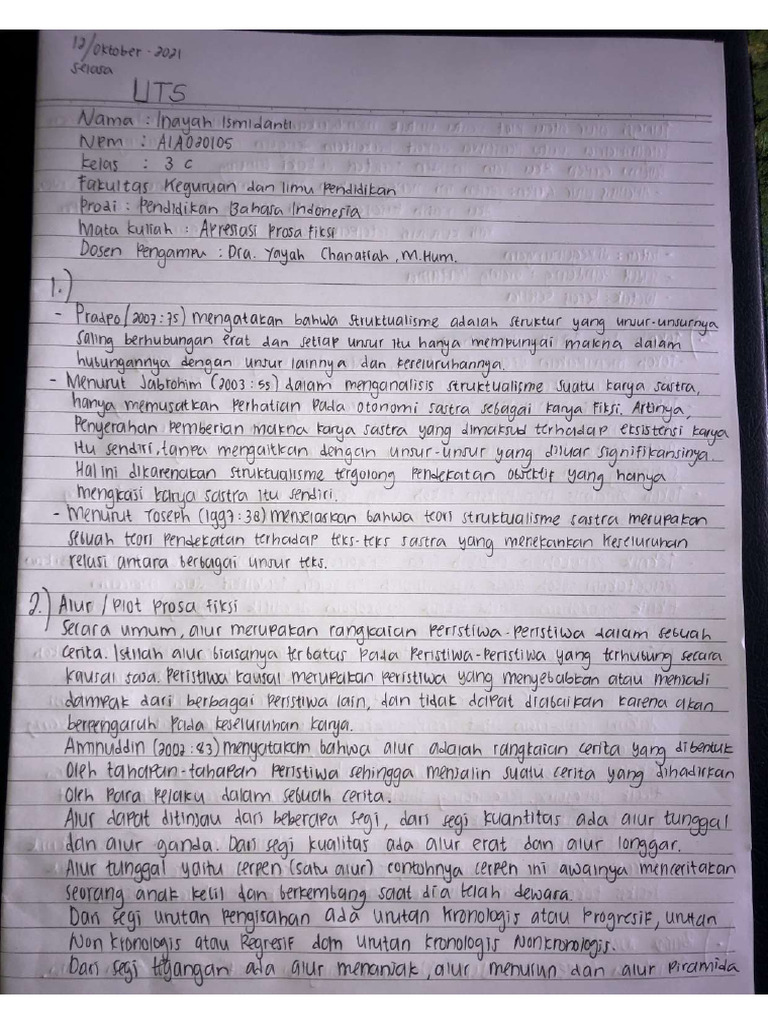 12/Oktober-2021
Selasa
UTS
Nama : Inayah Ismidanti
NPM : A1A020105
Kelas : 3 C
Fakultas Keguruan dan Ilmu Pendidikan
Prodi : Pendidikan Bahasa Indonesia
Mata Kuliah : Apresiasi Prosa Fiksi
Dosen Pengampu : Dra. Yayah Chanafiah, M.Hum.
1.)
- Pradpo (2007:75) mengatakan bahwa struktualisme adalah struktur yang unsur-unsurnya
saling berhubungan erat dan setiap unsur itu hanya mempunyai makna dalam
hubungannya dengan unsur lainnya dan keseluruhannya.
- Menurut Jabrohim (2003:55) dalam menganalisis struktualisme suatu karya sastra,
hanya memusatkan perhatian pada otonomi sastra sebagai karya fiksi. Artinya,
Penyerahan pemberian makna karya sastra yang dimaksud terhadap eksistensi karya
itu sendiri, tanpa mengaitkan dengan unsur-unsur yang diluar signifikansinya.
Hal ini dikarenakan struktualisme tergolong pendekatan objektif yang hanya
mengkasi karya sastra itu sendiri.
- Menurut Joseph (1997:38) menjelaskan bahwa teori struktualisme sastra merupakan
sebuah teori pendekatan terhadap teks-teks sastra yang menekankan keseluruhan
relasi antara berbagai unsur teks.
2.) Alur / Plot Prosa fiksi
Secara umum, alur merupakan rangkaian peristiwa-peristiwa dalam sebuah
cerita. Istilah alur biasanya terbatas pada peristiwa-peristiwa yang terhubung secara
kausal saja. Peristiwa kausal merupakan peristiwa yang menyebabkan atau menjadi
dampak dari berbagai peristiwa lain, dan tidak dapat diabaikan karena akan
berpengaruh pada keseluruhan karya.
Aminuddin (2002:83) menyatakan bahwa alur adalah rangkaian cerita yang dibentuk
oleh tahapan-tahapan peristiwa sehingga menjalin suatu cerita yang dihadirkan
oleh para pelaku dalam sebuah cerita.
Alur dapat ditinjau dari beberapa segi, dari segi kuantitas ada alur tunggal
dan alur ganda. Dari segi kualitas ada alur erat dan alur longgar.
Alur tunggal yaitu cerpen (satu alur) contohnya cerpen ini awalnya menceritakan
seorang anak kecil dan berkembang saat dia telah dewasa.
Dari segi urutan pengisahan ada urutan kronologis atau progresif, urutan
Non kronologis atau Regresif dan urutan kronologis Nonkronologis.
Dari segi tegangan ada alur menanjak, alur menurun dan alur piramida